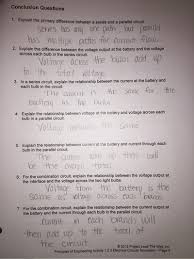 Conclusion Questions
1. Explain the primary difference between a series and a parallel circuit.
Series has only one path, but parallel
has multiple paths for current flow.
2. Explain the difference between the voltage output at the battery and the voltage
across each bulb in the series circuit.
Voltage across the bulbs add up
to the total voltage
3. In a series circuit, explain the relationship between the current at the battery and
each bulb in the circuit.
The current is the same for
4. Explain the relationship between voltage at the battery and voltage across each
bulb in a parallel circuit.
Voltage same
5. Explain the relationship between the current at the battery and current through each
bulb in the parallel circuit.
The add up to be
the total
6. For the combination circuit, explain the relationship between the voltage output at
the interface and the voltage across the two light bulbs.
Voltage from the battery is the
same as voltage across the
7. For the combination circuit, explain the relationship between the current at the battery and current
current at each will
then add up to the total of
the circuit.
© 2012 Project Lead The Way, Inc.
Principles of Engineering Activity 1.2.3 Electrical Circuits Simulation – Page